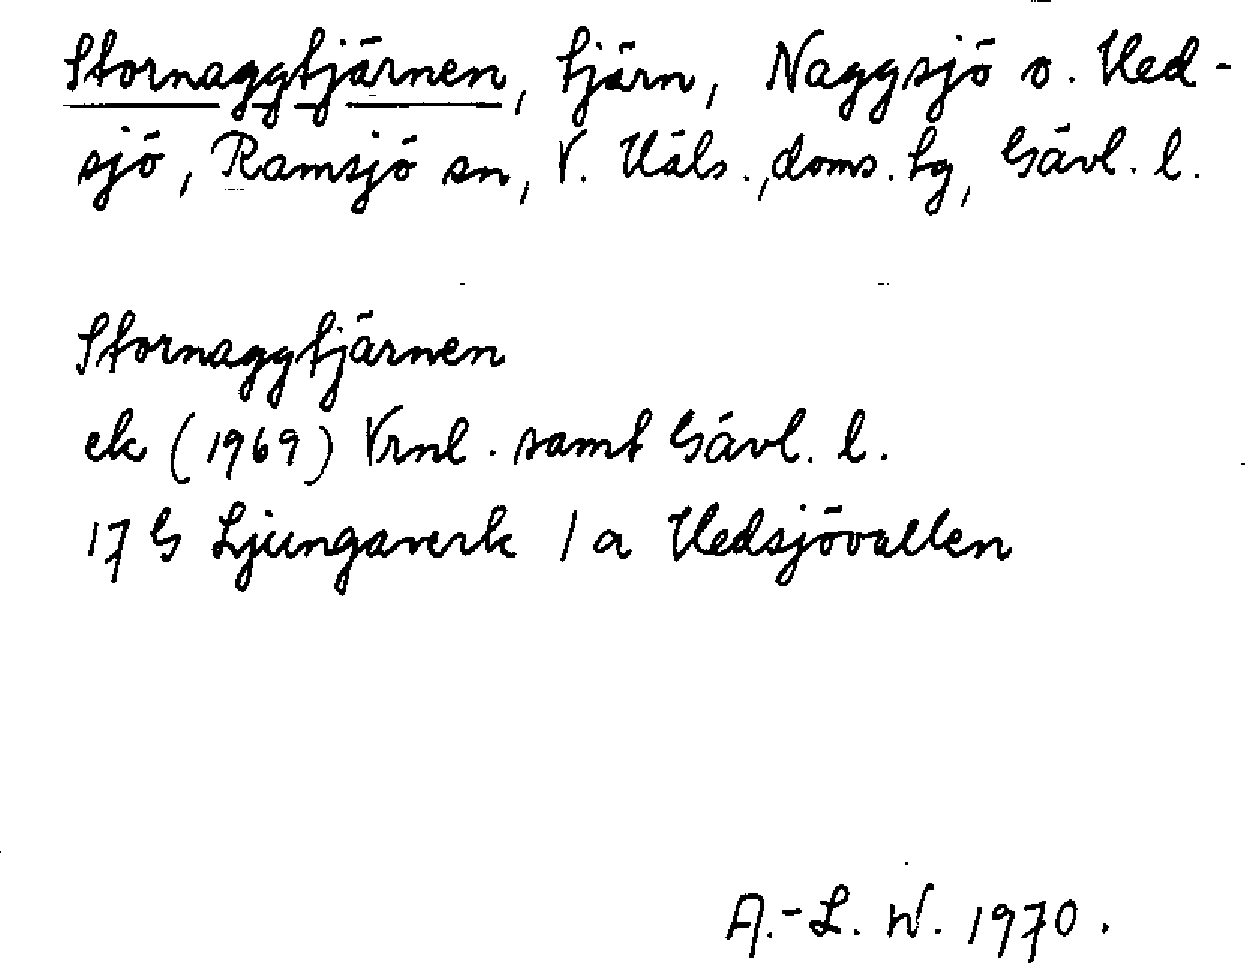 Stornaggtjärnen, tjärn, Naggsjö o. Hed-
sjö, Ramsjö sn, V. Häls., doms. tg, Gävl. l.
Stornaggtjärnen
ek (1969) Vrnl. samt Gävl. l.
17 G Ljungaverk 1 a Hedsjövallen
A.-L. W. 1970.